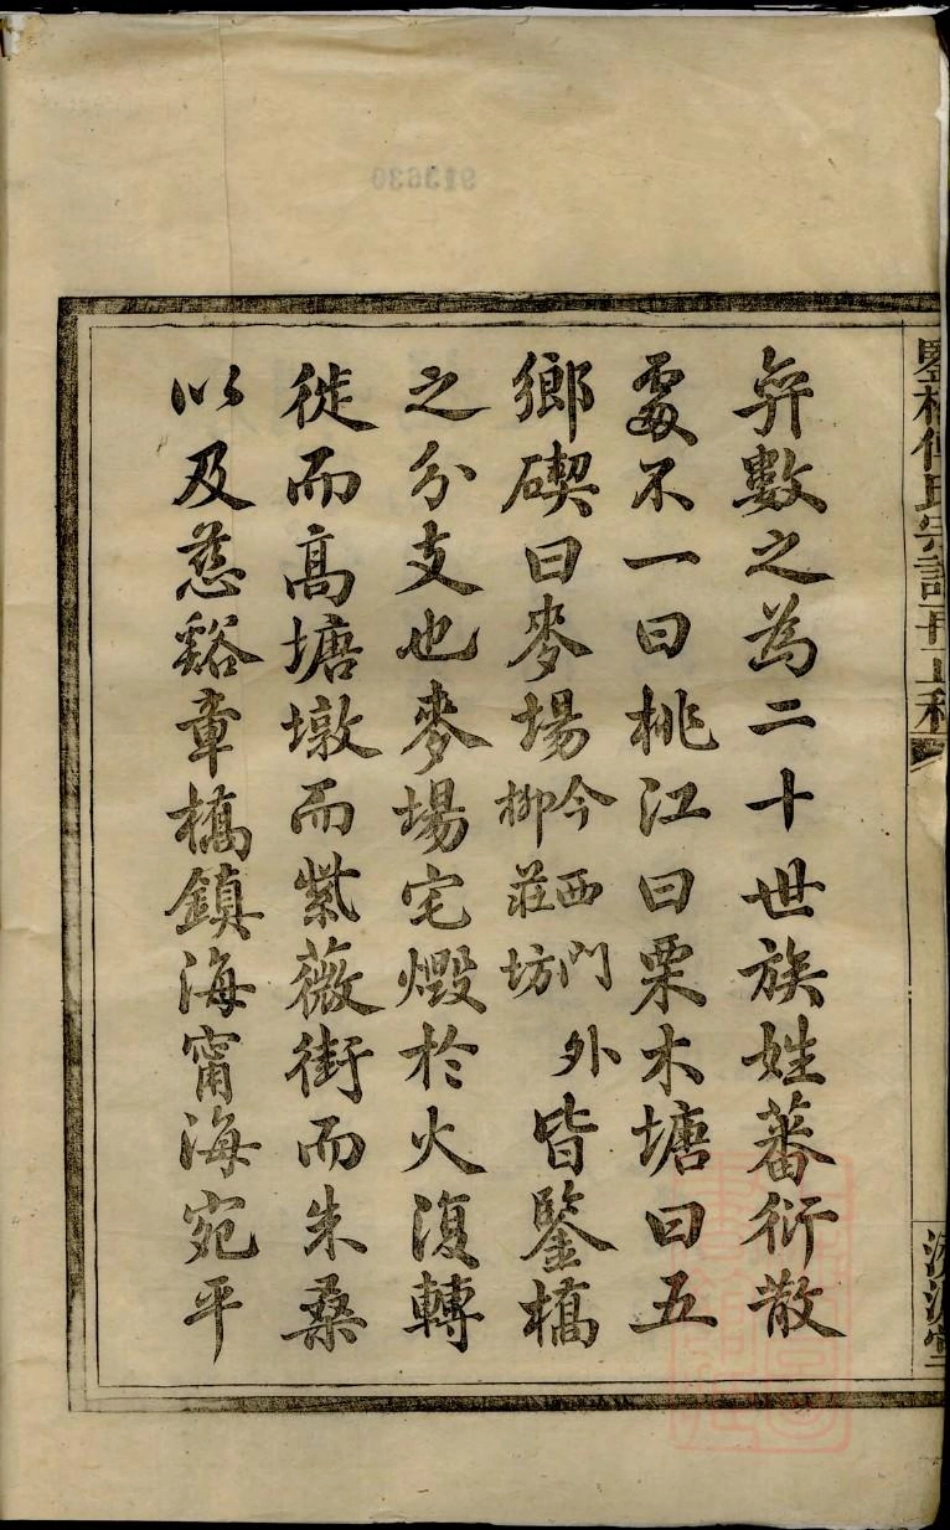 弅數之為二十世族姓蕃衍散
處不一曰桃江曰栗木塘曰五
鄉碶曰麥場今西門外柳莊坊皆鑒橋
之分支也麥場宅燬於火復轉
徙而高塘墩而紫薇街而朱桑
以及慈谿章橋鎮海甯海宛平
913630